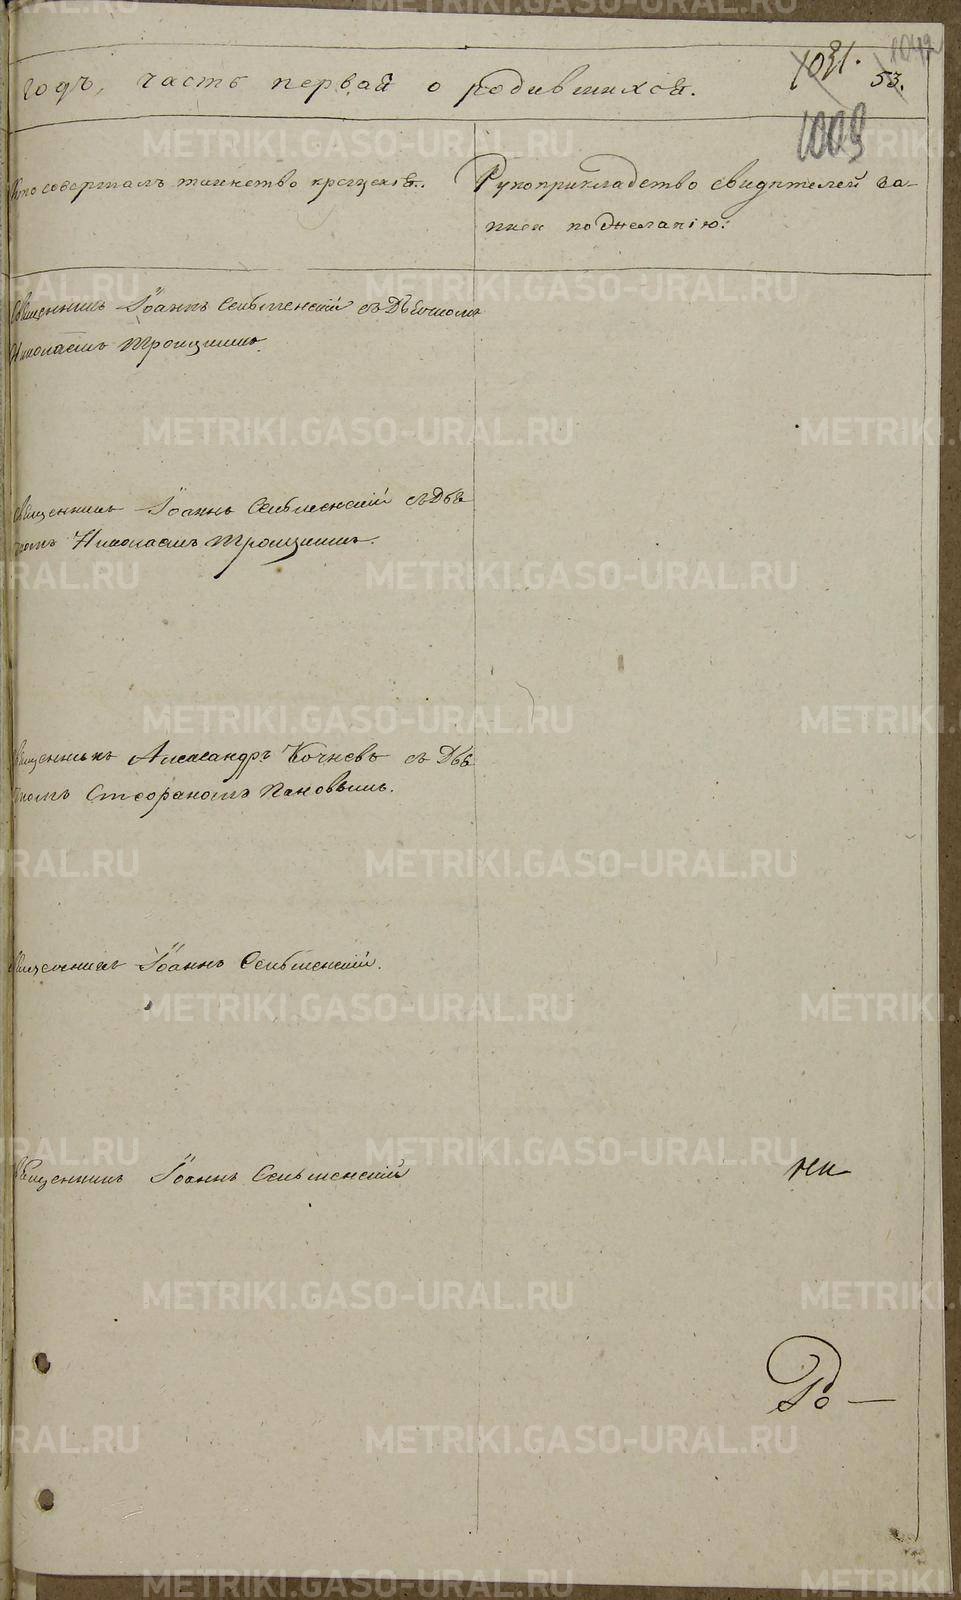 1042
1031.
53.
годъ, часть первая о родившихся.
1009
Кто совершалъ таинство крещенія.
Рукоприкладство свидѣтелей за-
писи по желанію:
Священникъ Іоаннъ Сельменскій съ Дьячкомъ
Николаемъ Троицкимъ.
Священникъ Іоаннъ Сельменскій съ Дья
комъ Николаемъ Троицкимъ.
Священникъ Александръ Кочневъ съ Дья
Стефаномъ Пановымъ.
Священникъ Іоаннъ Сельменскій.
Священникъ Іоаннъ Сельменскій
Ро —
METRIKI.GASO-URAL.RU